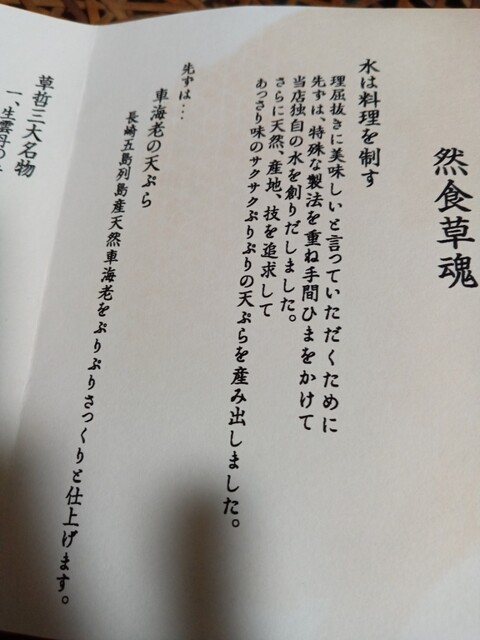 然食草魂
水は料理を制す
理屈抜きに美味しいと言っていただくために
先ずは、特殊な製法を重ね手間ひまをかけて
当店独自の水を創りだしました。
さらに天然、産地、技を追求して
あっさり味のサクサクぷりぷりの天ぷらを産み出しました。
先ずは…
車海老の天ぷら
長崎五島列島産天然車海老をぷりぷりさっくりと仕上げます。
草哲三大名物
一、生雲丹の